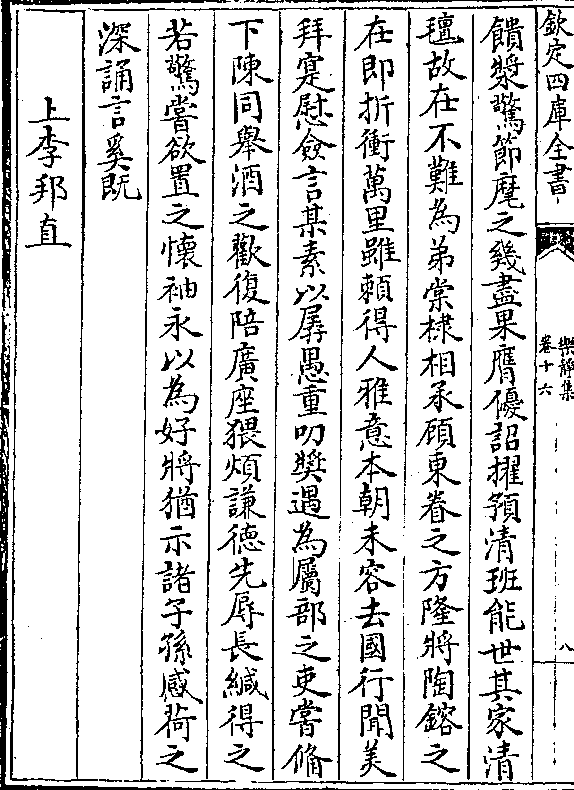 欽定四庫全書
樂靜集
卷十六
八
饋漿驚節麾之幾盡果膺優詔擢預清班能世其家清
氊故在不難為弟棠棣相承顧東眷之方隆將陶鎔之
在即折衝萬里雖頼得人雅意本朝未容去國行聞美
拜寔慰僉言某素以孱愚重叨奬遇為屬部之吏嘗脩
下陳同舉酒之歡復陪廣座猥煩謙德先辱長緘得之
若驚嘗欲置之懷袖永以為好將猶示諸子孫感荷之
深誦言奚既
上李邦直